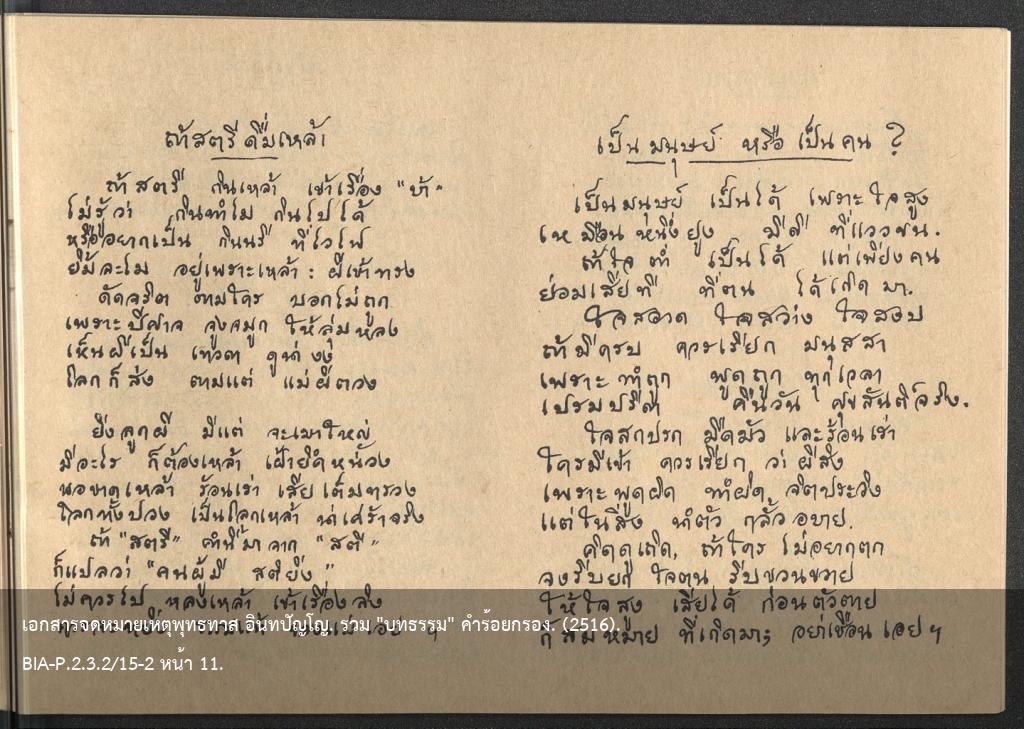 ถ้าสตรีดื่มเหล้า
ถ้าสตรี กินเหล้า เข้าเรื่อง "บ้า"
ไม่รู้ว่า กินทำไม กินไปได้
หรืออยากเป็น กินนรี ที่ไวไฟ
ยิ้มละไม อยู่เพราะเหล้า : ผีเข้าทรง
ดัดจริต ตามใคร บอกไม่ถูก
เพราะปีศาจ จูงจมูก ให้ลุ่มหลง
เห็นผีเป็น เทวดา ดูน่างง
โลกก็ส่ง ตามแต่ แม่ผีดวง
ยิ่งลูกผี มีแต่ จะเมาใหญ่
มีอะไร ก็ต้องเหล้า เฝ้ายึดหน่วง
พอขาดเหล้า ร้อนเร่า เสียเต็มทรวง
โลกทั้งปวง เป็นโลกเหล้า น่าเศร้าจริง
ถ้า "สตรี" คำนี้มาจาก "สติ"
ก็แปลว่า "คนผู้มี สติยิ่ง"
ไม่ควรไป หลงเหล้า เข้าเรื่องลิง
เป็นมนุษย์ หรือ เป็นคน ?
เป็นมนุษย์ เป็นได้ เพราะใจสูง
เหมือนหนึ่งยูง มีดี ที่แววขน.
ถ้าใจต่ำ เป็นได้ แต่เพียงคน
ย่อมเสียที ที่ตน ได้เกิดมา.
ใจสอาด ใจสว่าง ใจสงบ
ถ้ามีครบ ควรเรียก มนุสสา
เพราะทำถูก พูดถูก ทุกเวลา
เปรมปรีดา คืนวัน ศุขสันติ์จริง.
ใจสกปรก มืดมัว และร้อนเร่า
ใครมีเข้า ควรเรียก ว่าผีสิง
เพราะพูดผิด ทำผิด จิตประวิง
แต่ในสิ่ง นำตัว กลั้วอบาย.
คิดดูเถิด, ถ้าใคร ไม่อยากตก
จงรีบยก ใจตน รีบขวนขวาย
ให้ใจสูง เสียได้ ก่อนตัวตาย
ก็สมหมาย ที่เกิดมา; อย่าเชือนเอย ฯ
เอกสารจดหมายเหตุพุทธทาส อินทปัญโญ. ร่วม "บทธรรม" คำร้อยกรอง. (2516).
BIA-P.2.3.2/15-2 หน้า 11.